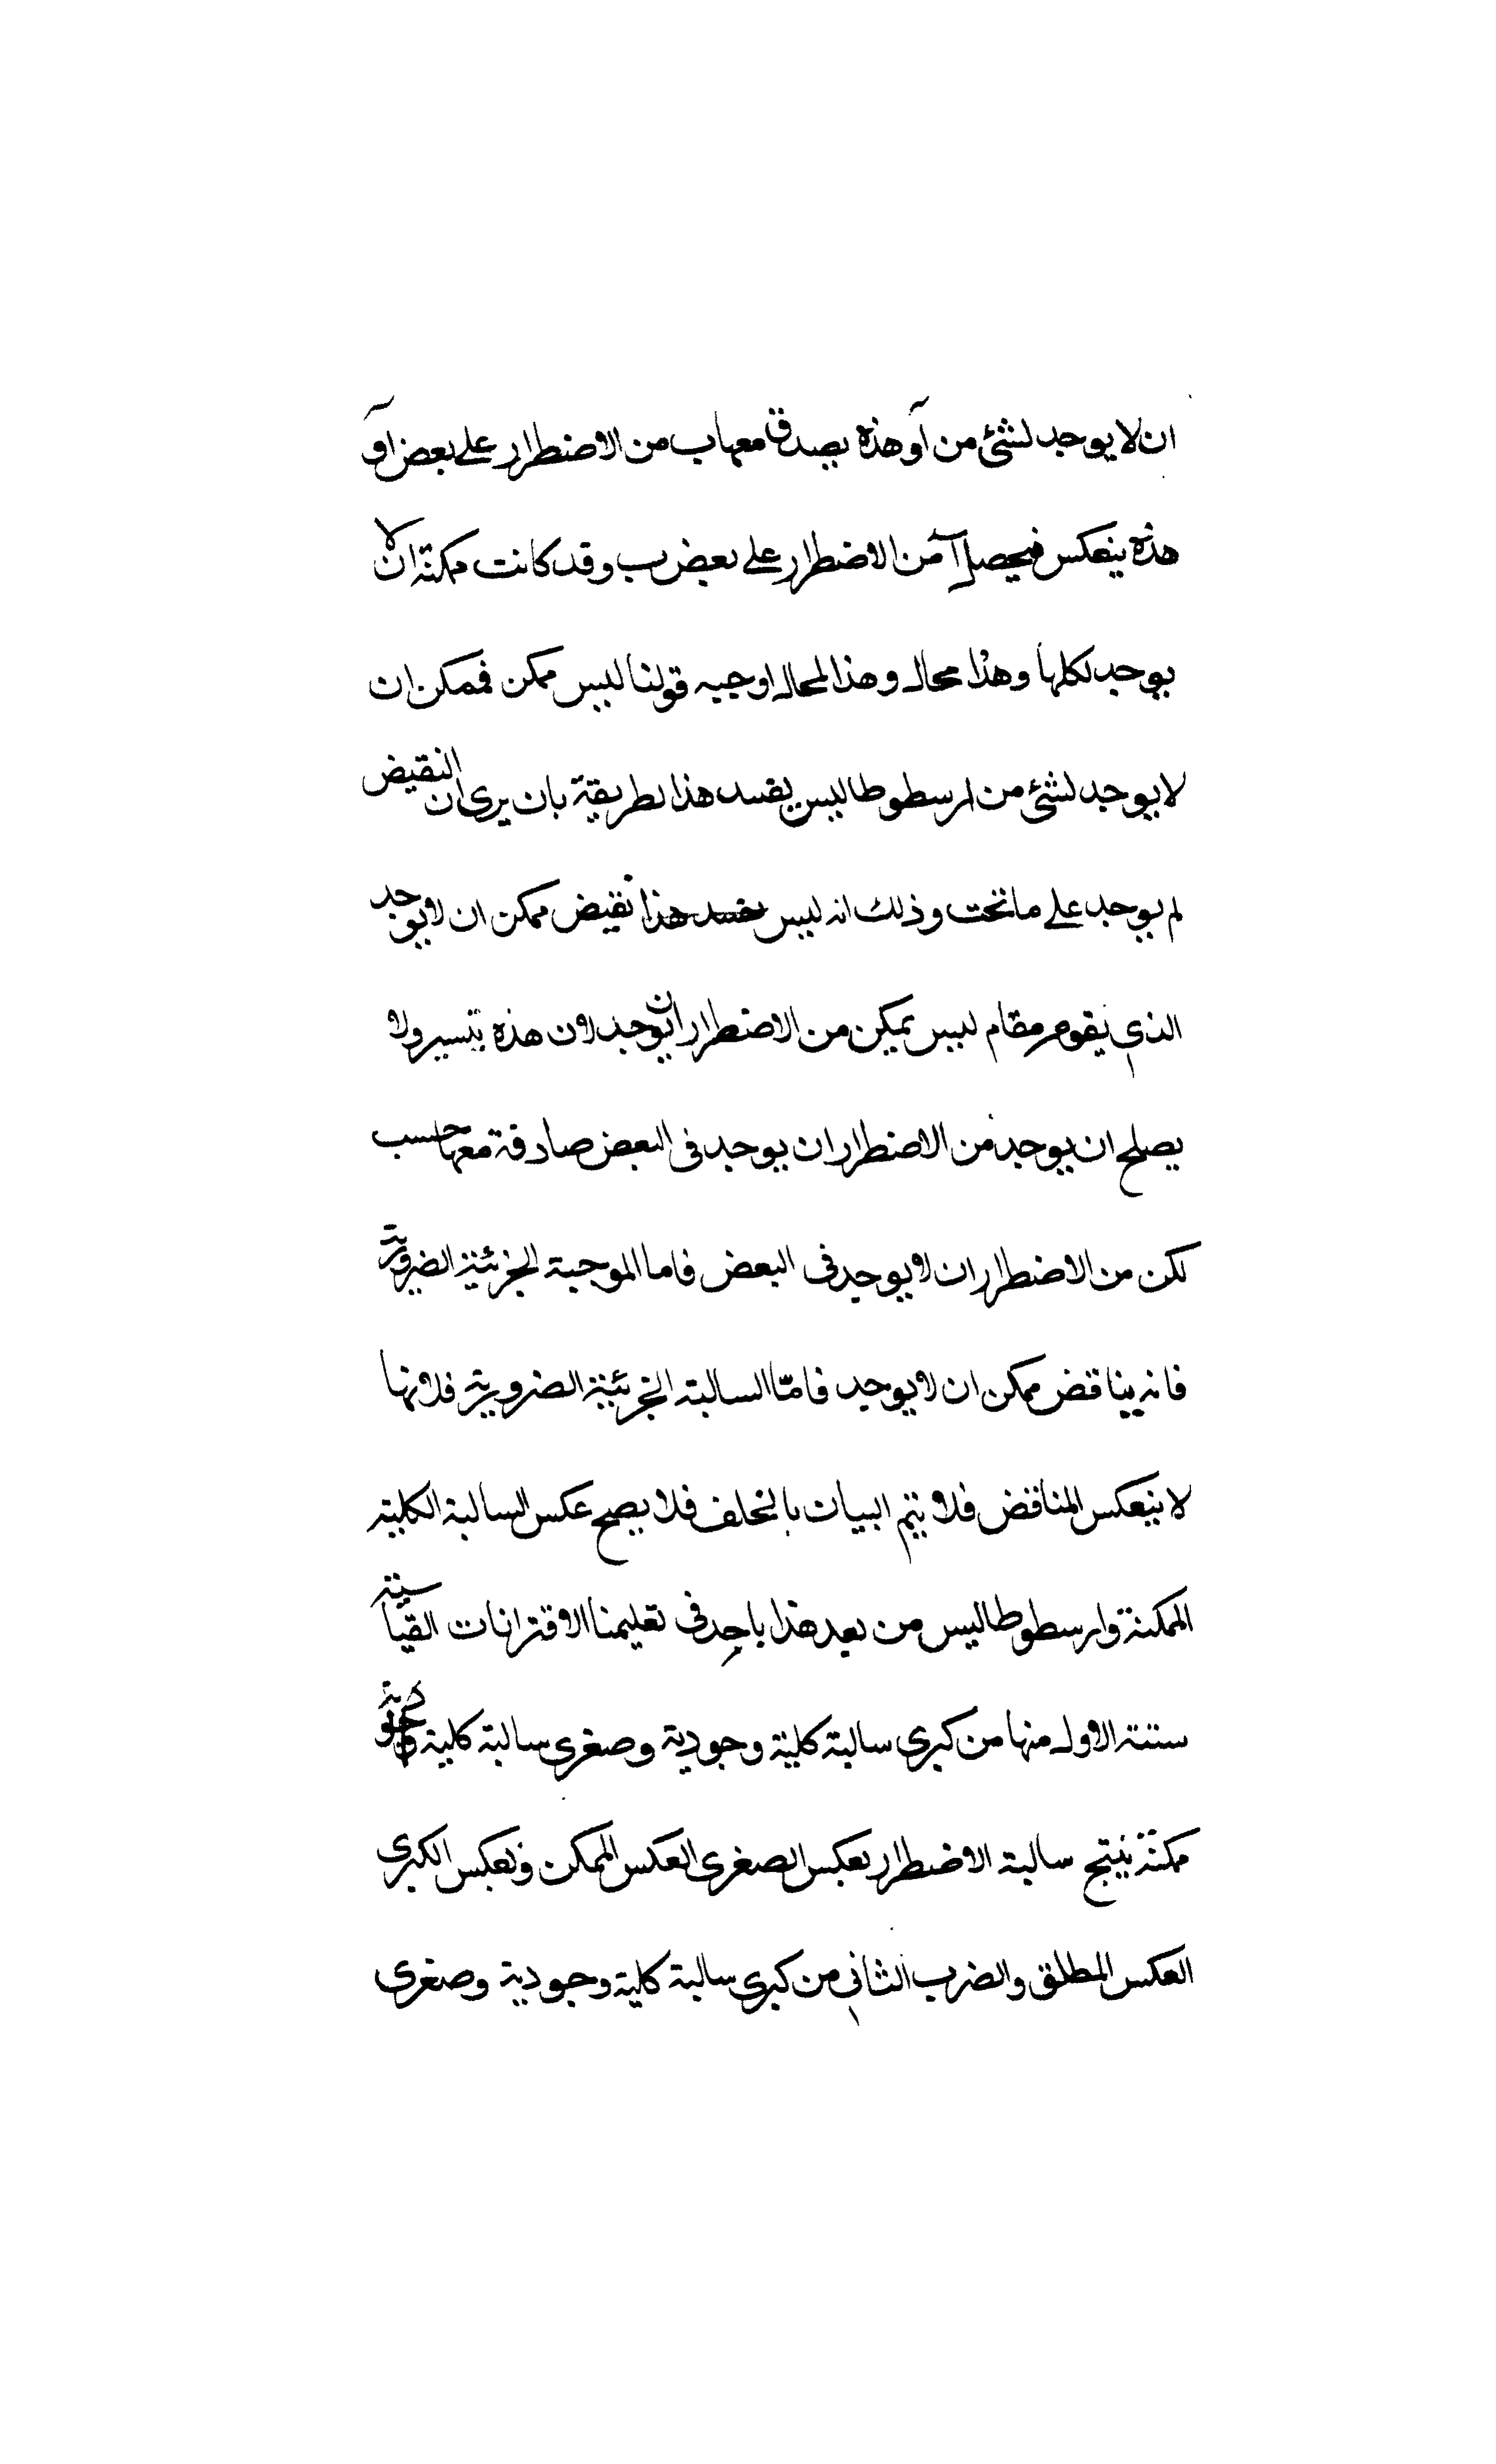 ان لا يوجد لشئ من آ وهذه يصدق معها ب من الاضطرار على بعض آ و
هذه ينعكس فيحصل آ من الاضطرار على بعض ب وقد كانت ممكنة ان لا
يوجد لكلها وهذا محال وهذا المحال اوجبه قولنا ليس ممكن فممكن ان
لا يوجد لشئ من ارسطوطاليس يفسد هذا بطريقة بان يرى ان النقيض
لم يوجد على ما تحت وذلك انه ليس يفسد هذا نقيض ممكن ان لا يوجد
الذي يقوم مقام ليس يمكن من الاضطرار ان يوجد لان هذه تتسير ولا
يصلح ان يوجد من الاضطرار ان يوجد فى البعض صادقة معها حسب
لكن من الاضطرار ان لا يوجد فى البعض فاما الموجبة الجزئية الضرورية
فانه يناقض ممكن ان لا يوجد فامّا السالبة الجزئية الضرورية فلانها
لا ينعكس المناقض فلا يتم البيان بالخلف فلا يصح عكس السالبة الكلية
الممكنة وارسطوطاليس من بعد هذا ياخذ فى تعليمنا الاقترانات القياسية
ستة الاول منها من كبرى سالبة كلية وجودية وصغرى سالبة كلية
ممكنة ينتج سالبة الاضطرار بعكس الصغرى العكس الممكن وبعكس الكبرى
العكس المطلق والضرب الثاني من كبرى سالبة كلية وجودية وصغرى